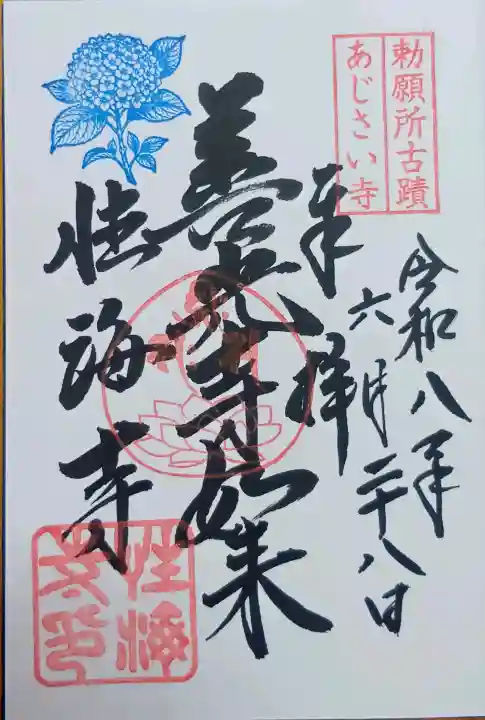 勅願所古蹟
あじさい寺
令和八年
六月二十八日
奉拝
善光寺如来
性海寺
性海
寺印